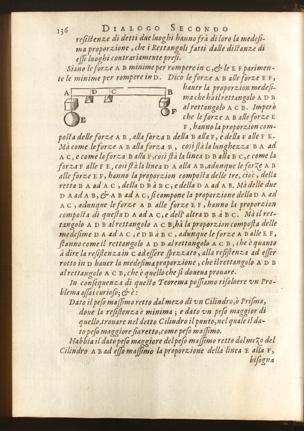 136 DIALOGO SECONDO
resistenze di detti due luoghi hanno frà di loro la medesi-
ma proporzione, che i Rettangoli fatti dalle distanze di
essi luoghi contrariamente presi.
Siano le forze A B minime per rompere in C, & le E F parimen-
te le minime per rompere in D. Dico le forze A B alle forze E F,
hauer la proporzion medesi-
ma che hà il rettangolo A D B
al rettangolo A C B. Imperò
che le forze A B alle forze E
F, hanno la proporzion com-
A D C B
E F
posta delle forze A B, alla forza B della B alla F, e della F alle F E.
Mà come le forze A B alla forza B, così stà la lunghezza B A ad
A C, e come la forza B alla F, così stà la linea D B alla B C, e come la
forza F alle F E, così stà la linea D A alla A B, adunque le forze A B
alle forze E F, hanno la proporzion composta delle tre, cioè, della
retta B A ad A C, della D B à B C, e della D A ad A B. Mà delle due
D A ad A B, & A B ad A C, si compone la proporzione della D A ad
A C, adunque le forze A B alle forze E F, hanno la proporzion
composta di questa D A ad A C, e dell'altra D B à B C. Mà il ret-
tangolo A D B al rettangolo A C B, hà la proporzion composta delle
medesime D A ad A C, e D B à B C, adunque le forze A B alle E F,
stanno come il rettangolo A D B al rettangolo A C B, che è quanto
à dire la resistenza in C ad essere spezzato, alla resistenza ad esser
rotto in D hauer la medesima proporzione, che il rettangolo A D B
al rettangolo A C B, che è quello che si doueua prouare.
In conseguenza di questo Teorema possiamo risoluere vn Pro-
blema assai curioso; & è:
Dato il peso massimo retto dal mezo di vn Cilindro, ò Prisma,
doue la resistenza è minima; e dato vn peso maggior di
quello, trouare nel detto Cilindro il punto, nel quale il da-
to peso maggiore sia retto, come peso massimo.
Habbia il dato peso maggiore del peso massimo retto dal mezo del
Cilindro A B ad esso massimo la proporzione della linea E alla F,
bisogna